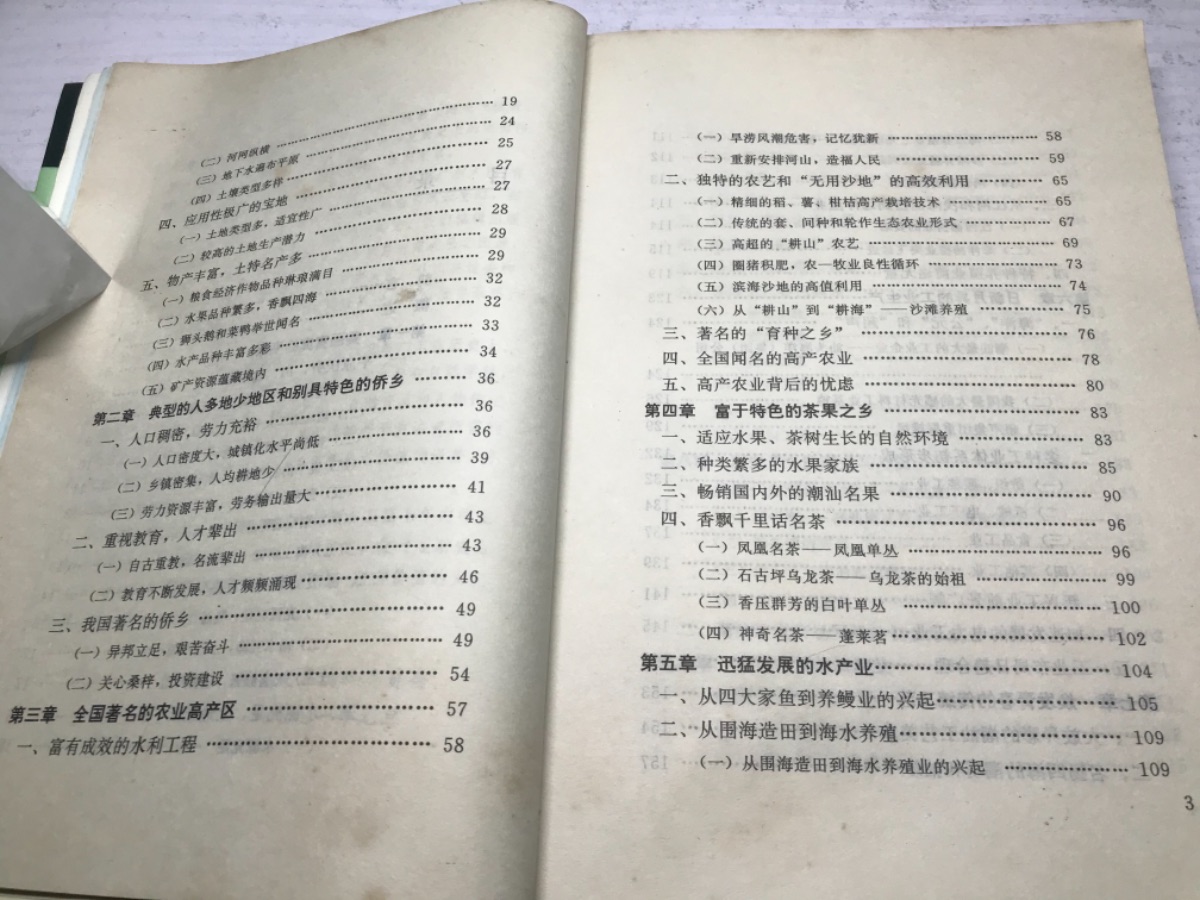 （二）河网纵横 …… 19
（三）地下水遍布平原 …… 24
（四）土壤类型多样 …… 25
四、应用性极广的宝地 …… 27
（一）土地类型多，适宜性广 …… 27
（二）较高的土地生产潜力 …… 28
五、物产丰富，土特名产多 …… 29
（一）粮食经济作物品种琳琅满目 …… 29
（二）水果品种繁多，香飘四海 …… 32
（三）狮头鹅和菜鸭举世闻名 …… 32
（四）水产品种丰富多彩 …… 33
（五）矿产资源蕴藏境内 …… 34
第二章　典型的人多地少地区和别具特色的侨乡 …… 36
一、人口稠密，劳力充裕 …… 36
（一）人口密度大，城镇化水平尚低 …… 36
（二）乡镇密集，人均耕地少 …… 39
（三）劳力资源丰富，劳务输出量大 …… 41
二、重视教育，人才辈出 …… 43
（一）自古重教，名流辈出 …… 43
（二）教育不断发展，人才频频涌现 …… 46
三、我国著名的侨乡 …… 49
（一）异邦立足，艰苦奋斗 …… 49
（二）关心桑梓，投资建设 …… 54
第三章　全国著名的农业高产区 …… 57
一、富有成效的水利工程 …… 58
（一）旱涝风潮危害，记忆犹新 …… 58
（二）重新安排河山，造福人民 …… 59
二、独特的农艺和“无用沙地”的高效利用 …… 65
（一）精细的稻、薯、柑桔高产栽培技术 …… 65
（二）传统的套、间种和轮作生态农业形式 …… 67
（三）高超的“耕山”农艺 …… 69
（四）圈猪积肥，农—牧业良性循环 …… 73
（五）滨海沙地的高值利用 …… 74
（六）从“耕山”到“耕海”——沙滩养殖 …… 75
三、著名的“育种之乡” …… 76
四、全国闻名的高产农业 …… 78
五、高产农业背后的忧虑 …… 80
第四章　富于特色的茶果之乡 …… 83
一、适应水果、茶树生长的自然环境 …… 83
二、种类繁多的水果家族 …… 85
三、畅销国内外的潮汕名果 …… 90
四、香飘千里话名茶 …… 96
（一）凤凰名茶——凤凰单丛 …… 96
（二）石古坪乌龙茶——乌龙茶的始祖 …… 99
（三）香压群芳的白叶单丛 …… 100
（四）神奇名茶——蓬莱茗 …… 102
第五章　迅猛发展的水产业 …… 104
一、从四大家鱼到养鳗业的兴起 …… 105
二、从围海造田到海水养殖 …… 109
（一）从围海造田到海水养殖业的兴起 …… 109
3